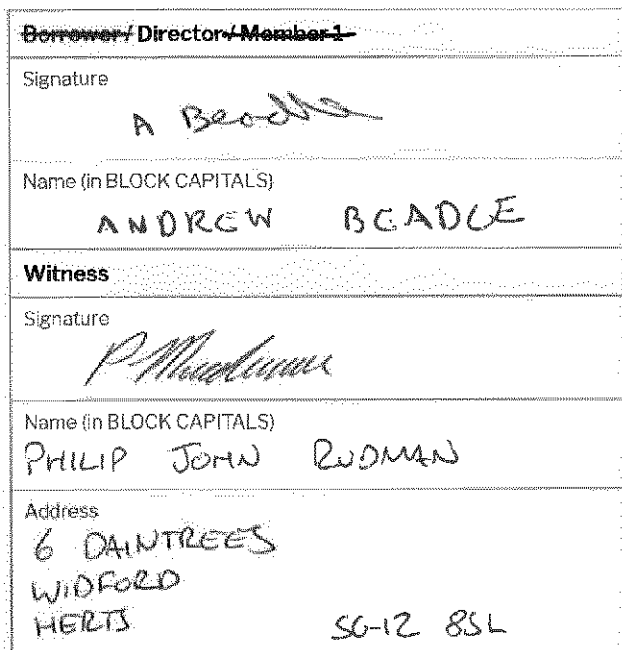 Borrower / Director / Member 1
Signature
A Beadle
Name (in BLOCK CAPITALS)
ANDREW BEADLE
Witness
Signature
Name (in BLOCK CAPITALS)
PHILIP JOHN RUDMAN
Address
6 DAINTREES
WIDFORD
HERTS SG-12 8SL